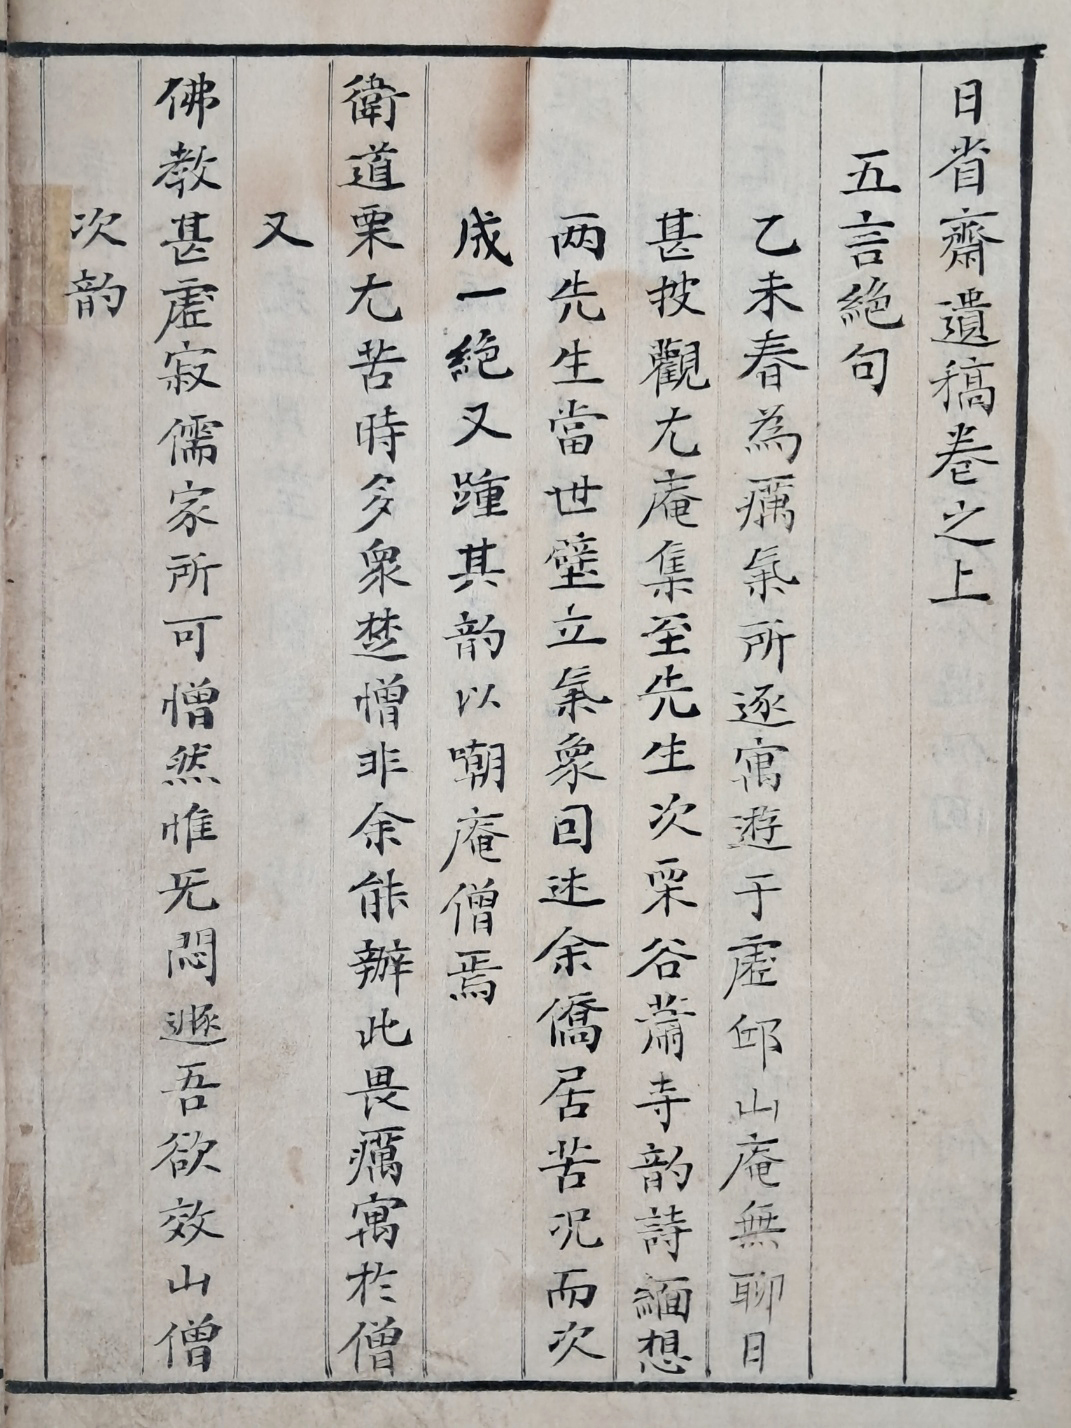 日省齋遺稿卷之上
五言絕句
乙未春為癘氣所逐寓遊于虛邱山庵無聊日
甚披觀尤庵集至先生次栗谷蕭寺韵詩緬想
兩先生當世壁立氣象囙述余僑居苦况而次
成一絶又踵其韵以嘲庵僧焉
衛道栗尤苦時多衆楚憎非余能辦此畏癘寓於僧
又
佛教甚虛寂儒家所可憎然惟旡悶遯吾欲效山僧
次韵